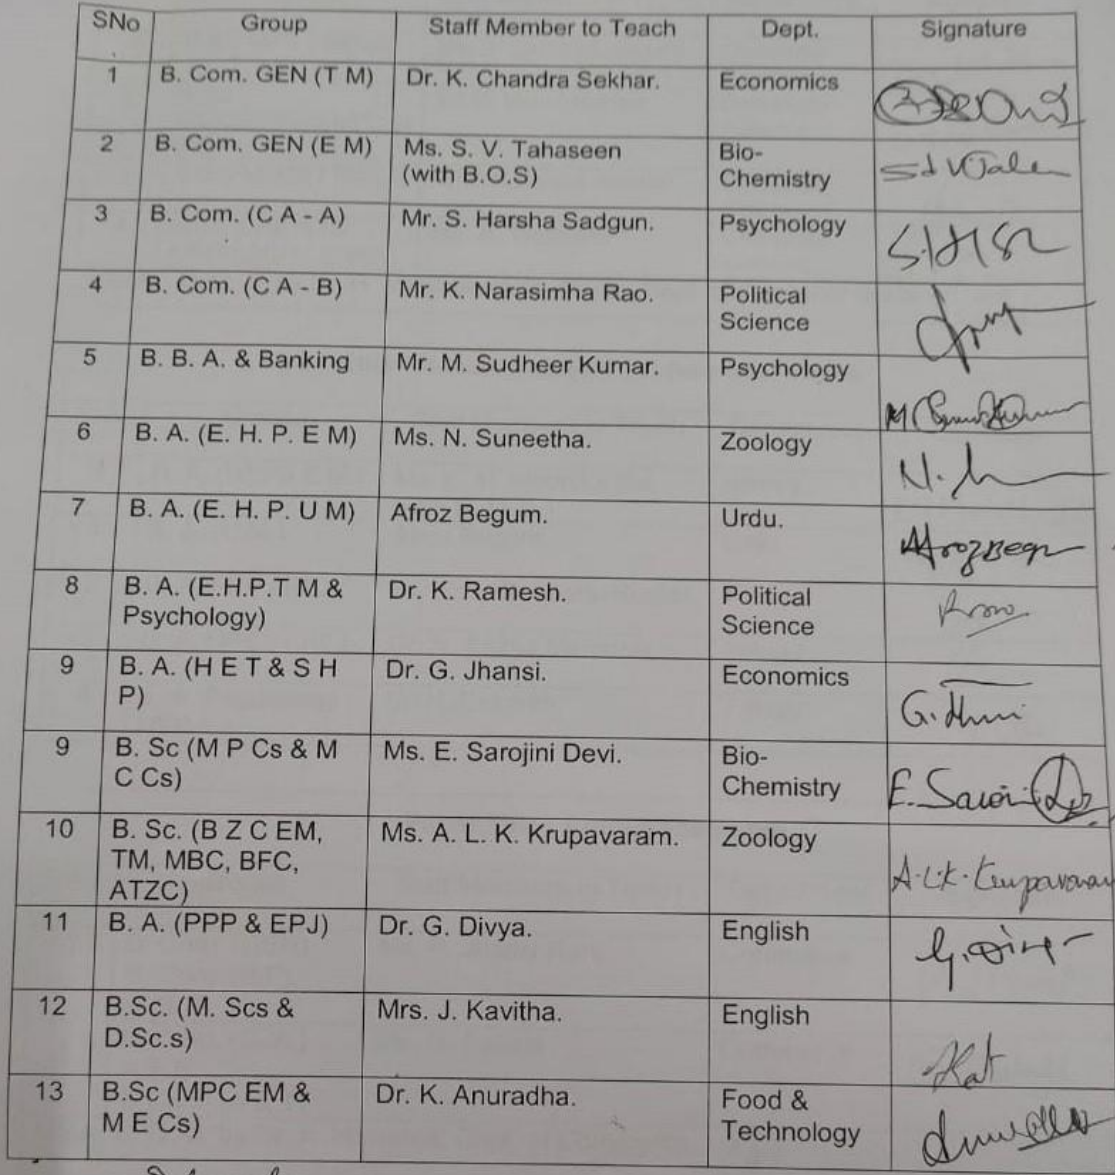 SNo Group Staff Member to Teach Dept. Signature
1 B. Com. GEN (T M) Dr. K. Chandra Sekhar. Economics
2 B. Com. GEN (E M) Ms. S. V. Tahaseen Bio-
(with B.O.S) Chemistry
3 B. Com. (C A - A) Mr. S. Harsha Sadgun. Psychology
4 B. Com. (C A - B) Mr. K. Narasimha Rao. Political
Science
5 B. B. A. & Banking Mr. M. Sudheer Kumar. Psychology
6 B. A. (E. H. P. E M) Ms. N. Suneetha. Zoology
N.
7 B. A. (E. H. P. U M) Afroz Begum. Urdu.
8 B. A. (E.H.P.T M & Dr. K. Ramesh. Political
Psychology) Science
9 B. A. (H E T & S H Dr. G. Jhansi. Economics
P) G.
9 B. Sc (M P Cs & M Ms. E. Sarojini Devi. Bio-
C Cs) Chemistry E.
10 B. Sc. (B Z C EM, Ms. A. L. K. Krupavaram. Zoology
TM, MBC, BFC, A.L.K. Krupavaram
ATZC)
11 B. A. (PPP & EPJ) Dr. G. Divya. English
12 B.Sc. (M. Scs & Mrs. J. Kavitha. English
D.Sc.s)
13 B.Sc (MPC EM & Dr. K. Anuradha. Food &
M E Cs) Technology